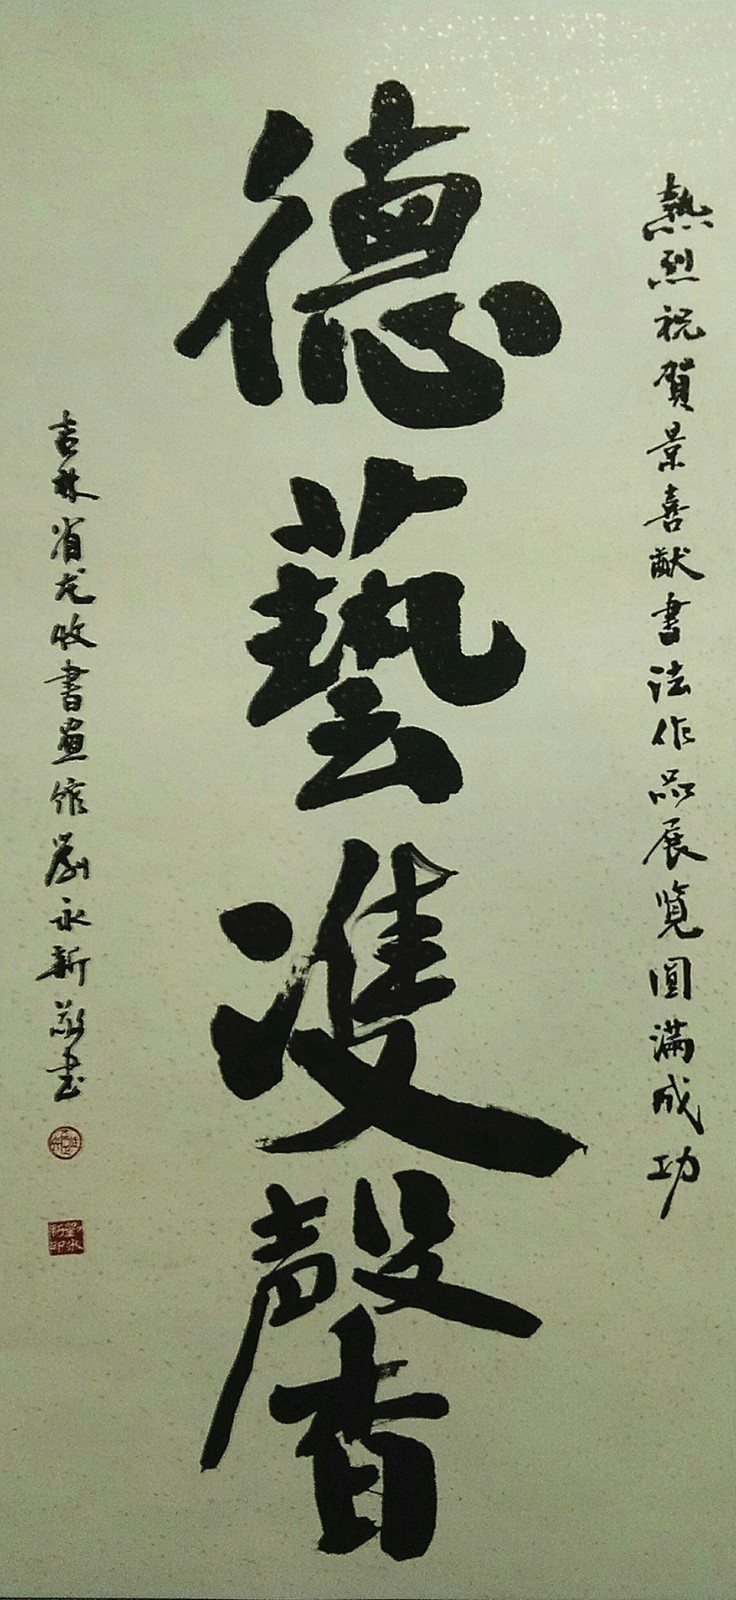 熱烈祝賀景喜猷書法作品展览圓满成功
德藝雙馨
吉林省龙收書畫館劉永新敬书